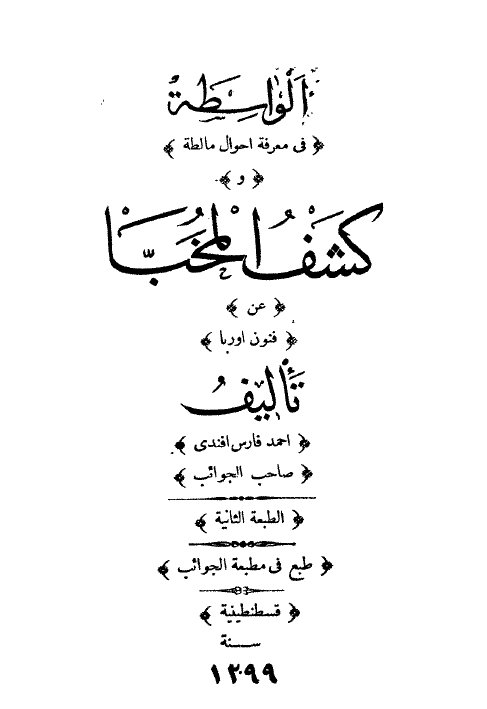 اَلْوَاسِطَةُ
﴿ فى معرفة احوال مالطة ﴾
﴿ و ﴾
كَشْفُ الْمُخَبَّا
﴿ عن ﴾
﴿ فنون اوربا ﴾
تَأْلِيفُ
﴿ احمد فارس افندى ﴾
﴿ صاحب الجوائب ﴾
﴿ الطبعة الثانية ﴾
﴿ طبع فى مطبعة الجوائب ﴾
﴿ قسطنطينية ﴾
سنة
١٢٩٩